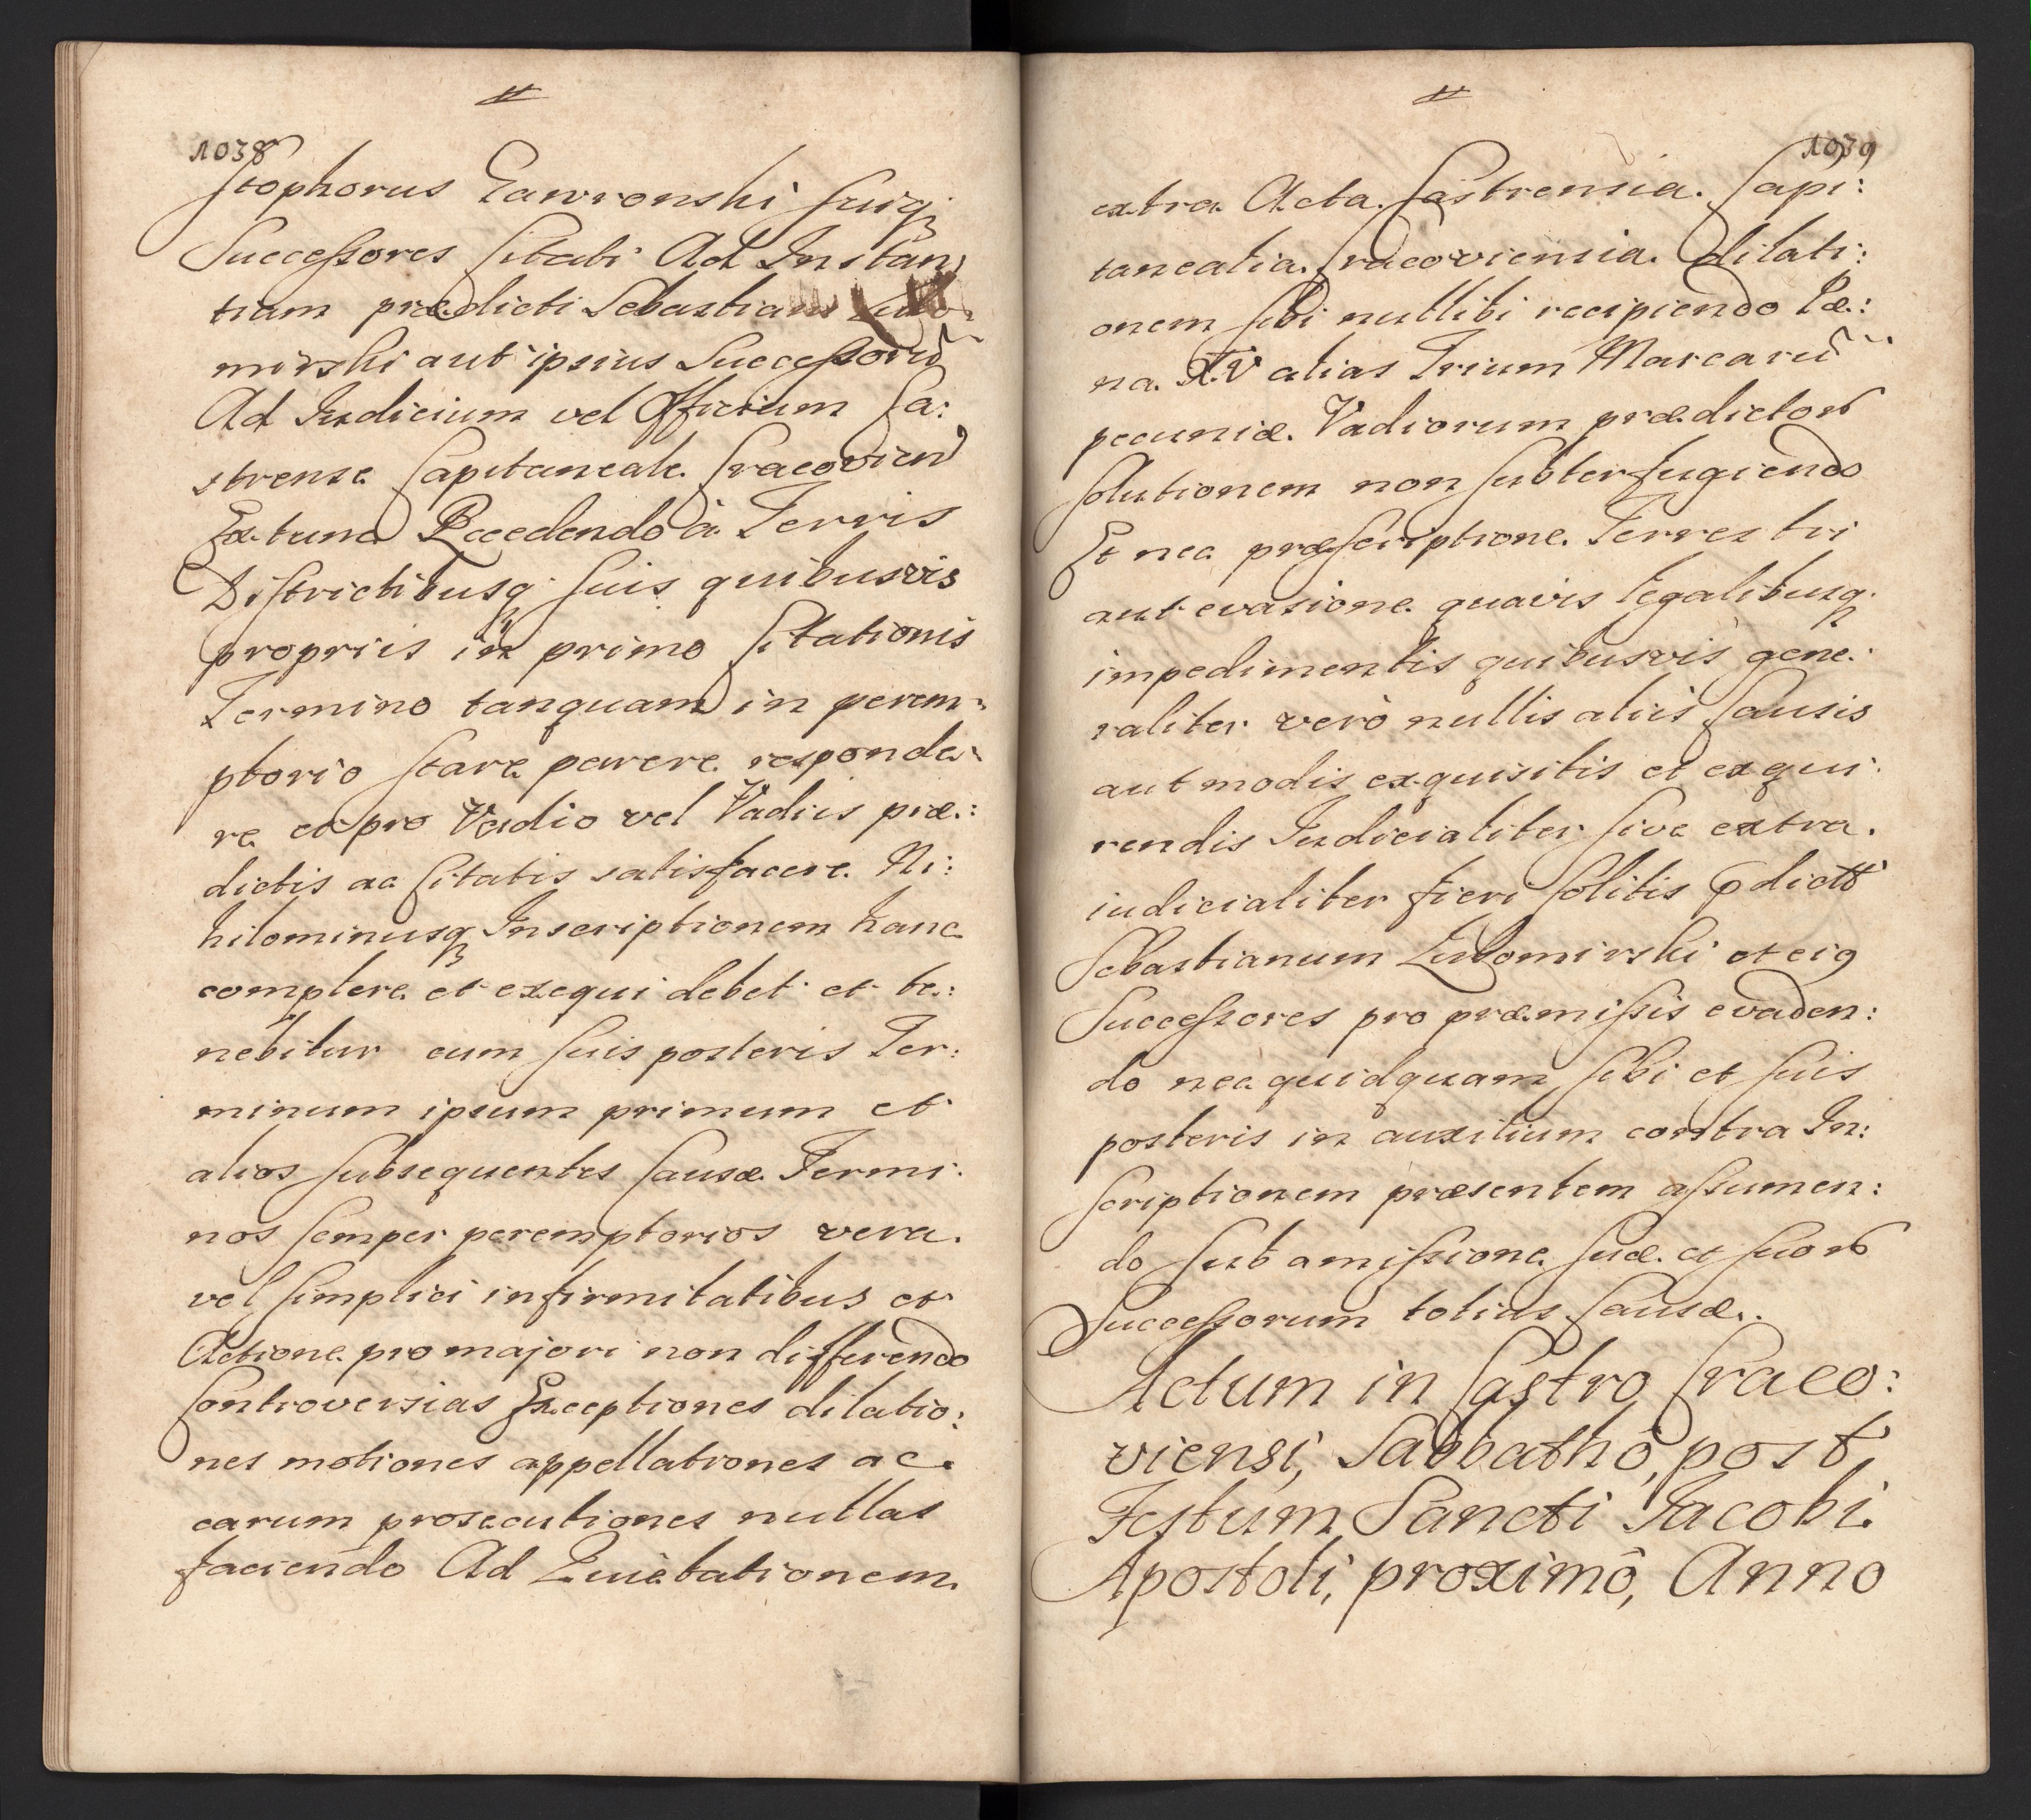 1038
stophorus Gawronski suiq;
Successores Citati Ad Instan:
tiam prædicti Sebastiani Lubo:
mirski aut ipsius Successorũ
Ad Iudicium vel Officium Ca:
strense Capitaneale Cracovien
Extunc Recedendo à Terris
Districtibusq suis quibusvis
propriis in primo Citationis
Termino tanquam in perem:
ptorio stare parere responde:
re et pro Vadio vel Vadiis præ:
dictis ac Citatis satisfacere Ni:
hilominusq Inscriptionem hanc
complere et exequi debet et te:
nebitur cum suis posteris Ter:
minum ipsum primum et
alios subsequentes Causæ Termi:
nos semper peremptorios vera
vel simplici infirmitatibus et
Actione pro majori non differendo
Controversias Exceptiones dilatio:
nes motiones appellationes ac
earum prosecutiones nullas
faciendo Ad Quietationem
1039
extra Acta Castrensia Capi:
taneatia Cracoviensia dilati:
onem sibi nullibi recipiendo Pæ:
na X.V alias Trium Marcarũ
pecuniæ Vadiorum prædictorb
solutionem non subterfugiendo
Et nec præscriptione Terrestri
aut evasione quavis legalibusq
impedimentis quibusvis gene:
raliter verò nullis aliis Causis
aut modis exquisitis et exqui:
rendis Iudicialiter sive extra
iudicialiter fieri solitis pdictt
Sebastianum Lubomirski et ei9
Successores pro præmissis evaden:
do nec quidquam sibi et suis
posteris in auxilium contra In:
scriptionem præsentem assumen:
do sub amissione suæ et suorb
Successorum totius Causæ.
Actum in Castro Craco:
viensi, Sabbathô, post
Festum Sancti Jacobi
Apostoli, proximô, Anno